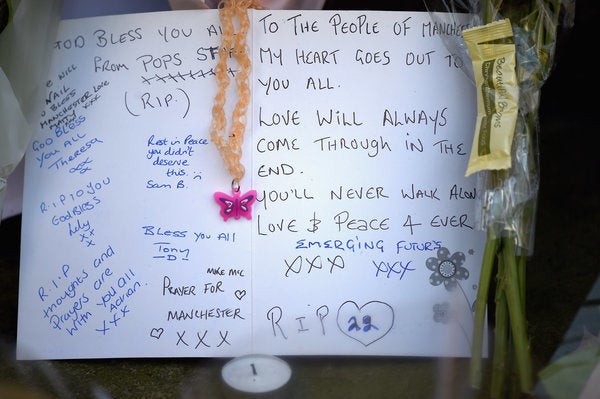 GOD BLESS YOU ALL
FROM POPS
XXXXXXX
(R.I.P.)
MANCHESTER LOVE
XXX
GOD BLESS
YOU ALL
Theresa
xx
R.I.P TO YOU
God BLESS
Lily
xx
x
R.I.P
thoughts and
Prayers are
with you all
Adrian.
XXX
Rest in Peace
you didn't
deserve
this. :(
Sam B.
Bless you All
Tony
-D-
PRAYER FOR
MANCHESTER
XXX
TO THE PEOPLE OF MANCHESTER
MY HEART GOES OUT TO
YOU ALL.
LOVE WILL ALWAYS
COME THROUGH IN THE
END.
YOU'LL NEVER WALK ALONE
LOVE & PEACE 4 EVER
EMERGING FUTURES
XXX XXX
R I P 22
Beautiful Blooms
1